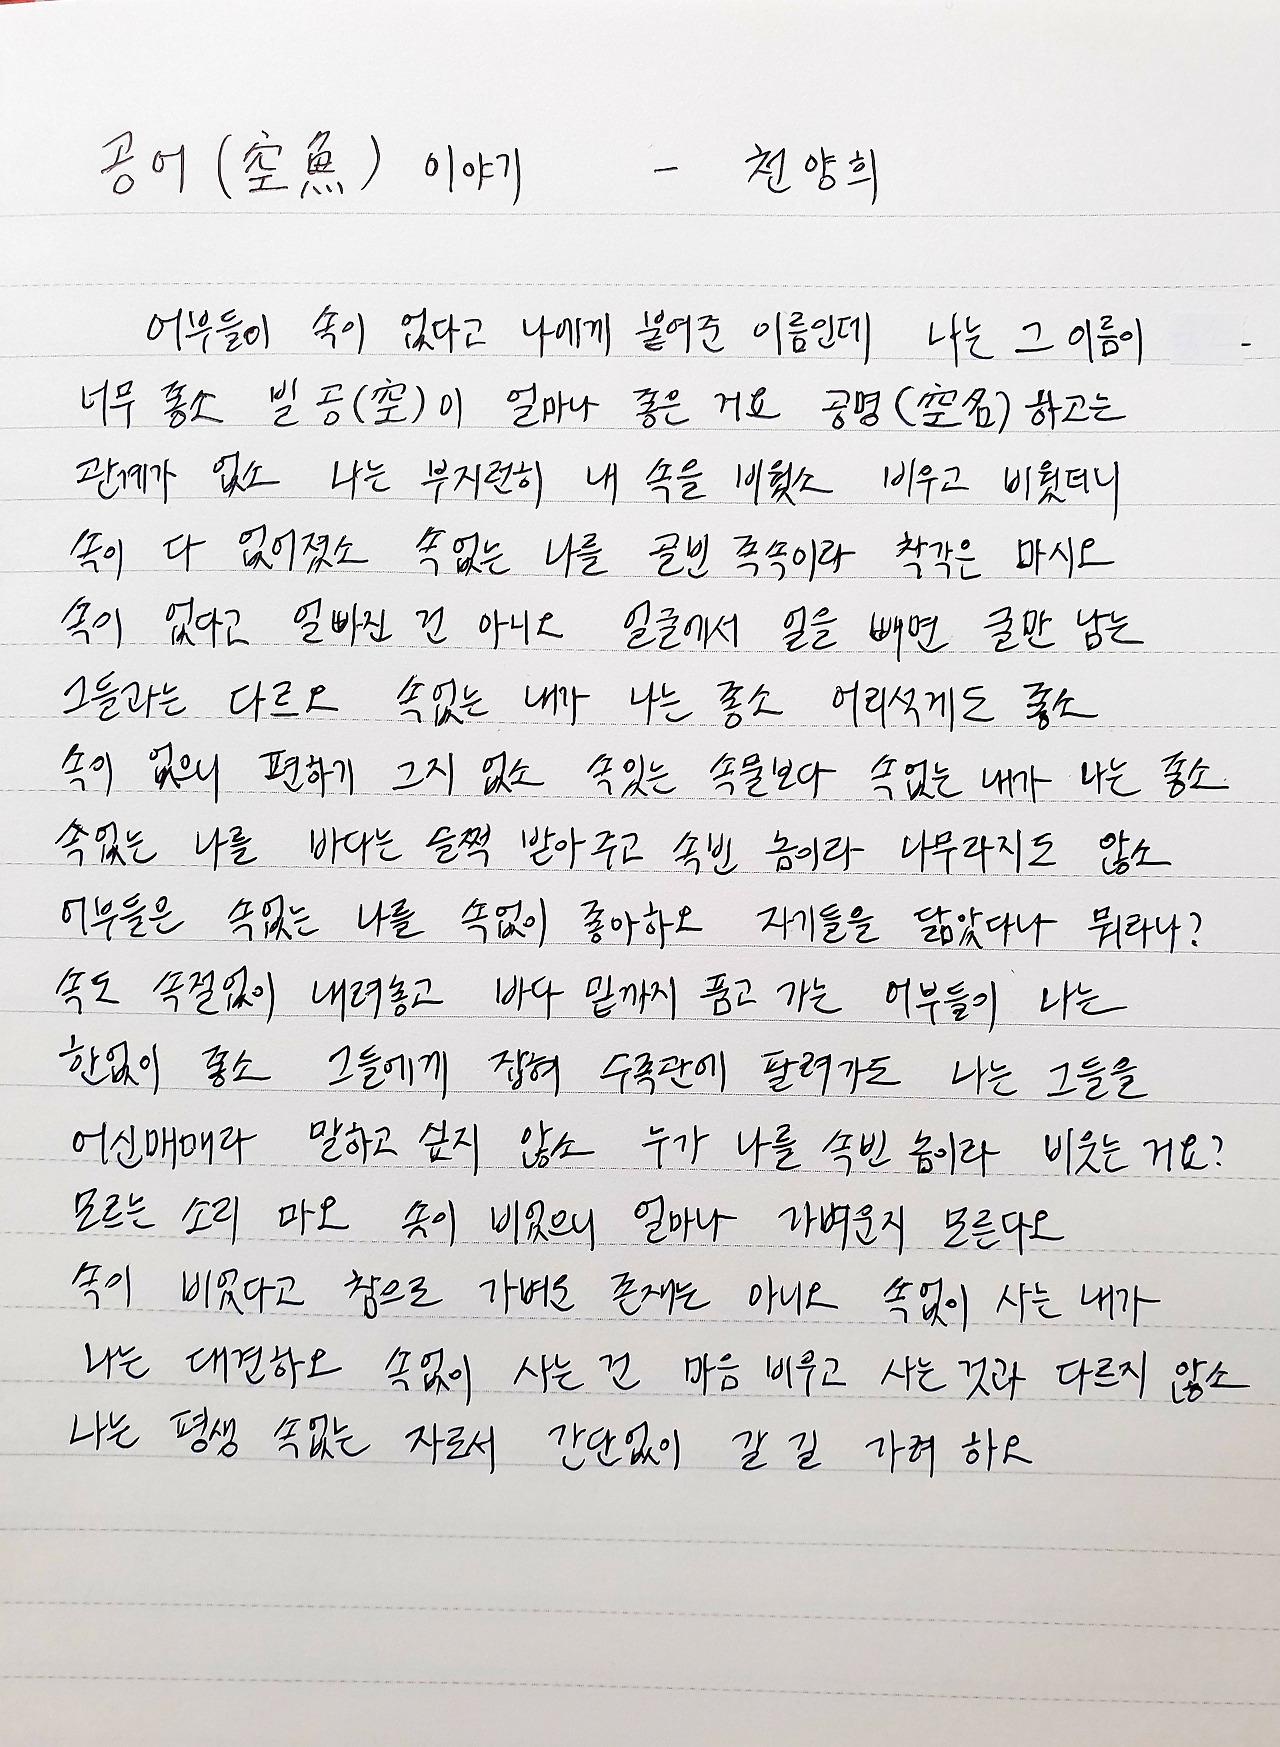 공어(空魚) 이야기 - 천양희
어부들이 속이 없다고 나에게 붙여준 이름인데 나는 그 이름이
너무 좋소 빌 공(空)이 얼마나 좋은 거요 공명(空名)하고는
관계가 없소 나는 부지런히 내 속을 비웠소 비우고 비웠더니
속이 다 없어졌소 속없는 나를 골빈 족속이라 착각은 마시오
속이 없다고 얼빠진 건 아니오 얼굴에서 얼을 빼면 굴만 남는
그들과는 다르오 속없는 내가 나는 좋소 어리석게도 좋소
속이 없으니 편하기 그지 없소 속있는 속물보다 속없는 내가 나는 좋소
속없는 나를 바다는 슬쩍 받아주고 속빈 놈이라 나무라지도 않소
어부들은 속없는 나를 속없이 좋아하오 자기들을 닮았다나 뭐라나?
속도 속절없이 내려놓고 바다 밑까지 품고 가는 어부들이 나는
한없이 좋소 그들에게 잡혀 수족관에 팔려가도 나는 그들을
어신매매라 말하고 싶지 않소 누가 나를 속빈 놈이라 비웃는 거요?
모르는 소리 마오 속이 비었으니 얼마나 가벼운지 모른다오
속이 비었다고 참으로 가벼운 존재는 아니오 속없이 사는 내가
나는 대견하오 속없이 사는 건 마음 비우고 사는 것과 다르지 않소
나는 평생 속없는 자로서 간단없이 갈 길 가려 하오